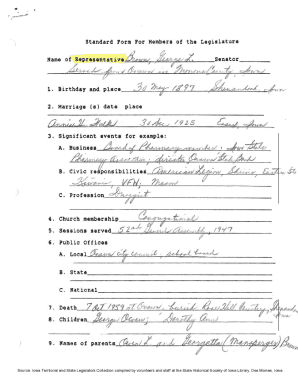 Standard Form For Members of the Legislature
Name of Representative Brown, George L. Senator
1. Birthday and place 30 May 1897 Shenandoah, Iowa
2. Marriage (s) date place
30 1925 Iowa
3. Significant events for example:
A. Business Board of Pharmacy member - Iowa State
Pharmacy Association; director State Bank
B. Civic responsibilities American Legion, Shrine,
Kiwanis, VFW, Mason
C. Profession Druggist
4. Church membership Congregational
5. Sessions served 52nd General Assembly, 1947
6. Public Offices
A. Local city council, school board
B. State
C. National
7. Death 7 1959 at buried Rose Hill Cemetery, Shenandoah
8. Children George ; Dorothy Ann
9. Names of parents and Georgetta (Mansperger) Brown
Source: Iowa Territorial and State Legislators Collection compiled by volunteers and staff at the State Historical Society of Iowa Library, Des Moines, Iowa.